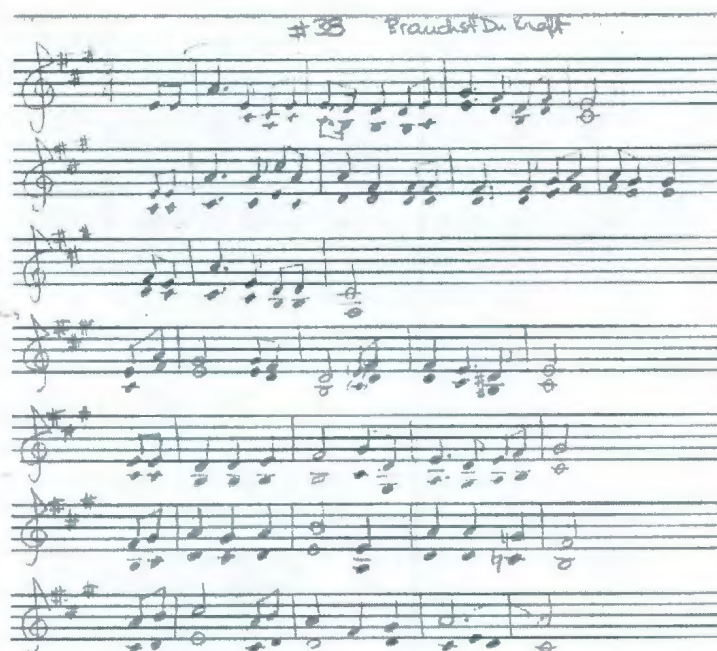 #38 Brauchst Du Kraft